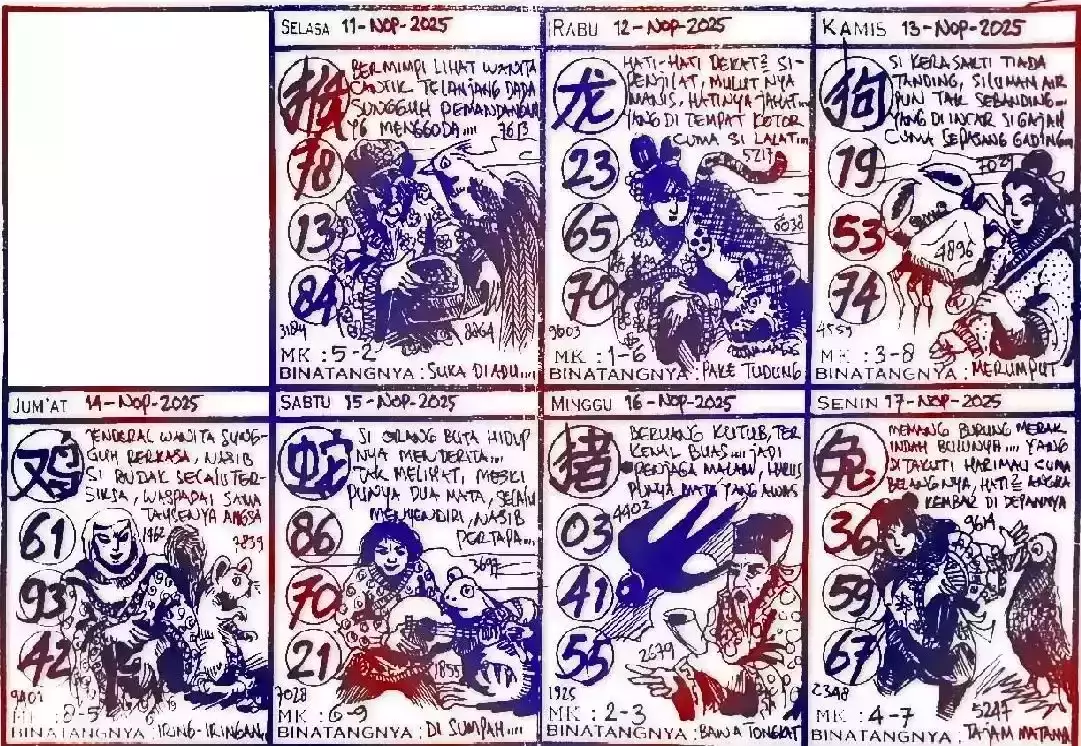 SELASA 11-NOP-2025
猴
BERMIMPI LIHAT WANITA
CANTIK TELANJANG DADA
SUNGGUH PEMANDANGAN
YG MENGGODA.... 7613
78
13
84
3184 8864
MK : 5-2
BINATANGNYA : SUKA DIADU....
RABU 12-NOP-2025
龙
HATI-HATI DEKAT² SI-
PENJILAT, MULUTNYA
MANIS, HATINYA JAHAT...
YANG DI TEMPAT KOTOR
CUMA SI LALAT...
5213
23
65
6038
70
9603
MK : 1-6
BINATANGNYA : PAKE TUDUNG
KAMIS 13-NOP-2025
狗
SI KERA SAKTI TIADA
TANDING, SILUMAN AIR
PUN TAK SEBANDING...
YANG DI INCAR SI GAJAH
CUMA SEPASANG GADING...
7029
19
53
4896
74
MK : 3-8
BINATANGNYA : MERUMPUT
JUM'AT 14-NOP-2025
鸡
JENDERAL WANITA SUNG-
GUH PERKASA, NASIB
SI BUDAK SECALU TER-
SIKSA, WASPADAI SAMA
ANGSA
61
7839
93
42
MK :
BINATANGNYA : IRING-IRINGAN
SABTU 15-NOP-2025
蛇
SI ORANG BUTA HIDUP
NYA MENDERITA...
TAK MELIHAT, MESKI
PUNYA DUA MATA, SELALU
MENYENDIRI, NASIB
PERTAPA...
86
3697
70
21
1855
7028
MK : 6-9
BINATANGNYA : DI SUMPAH....
MINGGU 16-NOP-2025
猪
BERUANG KUTUB, TER
KENAL BUAS.... JADI
PENJAGA MALAM, HARUS
PUNYA MATA YANG AWAS
4402
03
41
55
2679
1925
MK : 2-3
BINATANGNYA : BAWA TONGKAT
SENIN 17-NOP-2025
兔
MEMANG BURUNG MERAK
INDAH BULUNYA.... YANG
DITAKUTI HARIMAU CUMA
BELANGNYA, HATI² ANGKA
KEMBAR DI DEPANNYA
9614
36
59
67
2348 5247
MK : 4-7
BINATANGNYA : TAJAM MATANYA